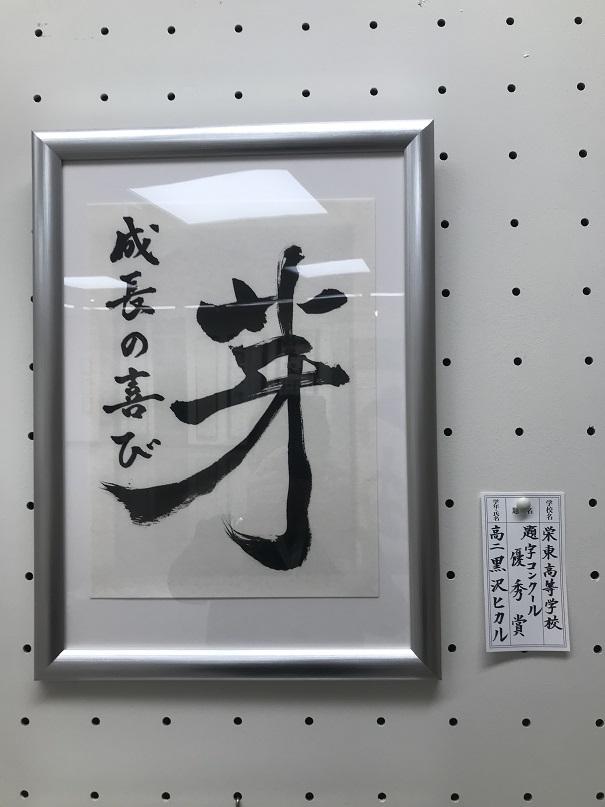 芽
成長の喜び
学校名
栄東高等学校
題字コンクール
優秀賞
学年氏名
高二 黒沢ヒカル